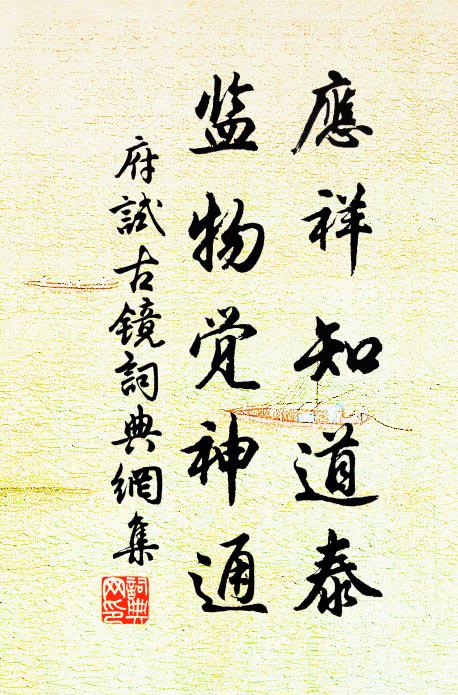 應祥知道泰
监物觉神通
府試古鏡詞典網集
詞典網印